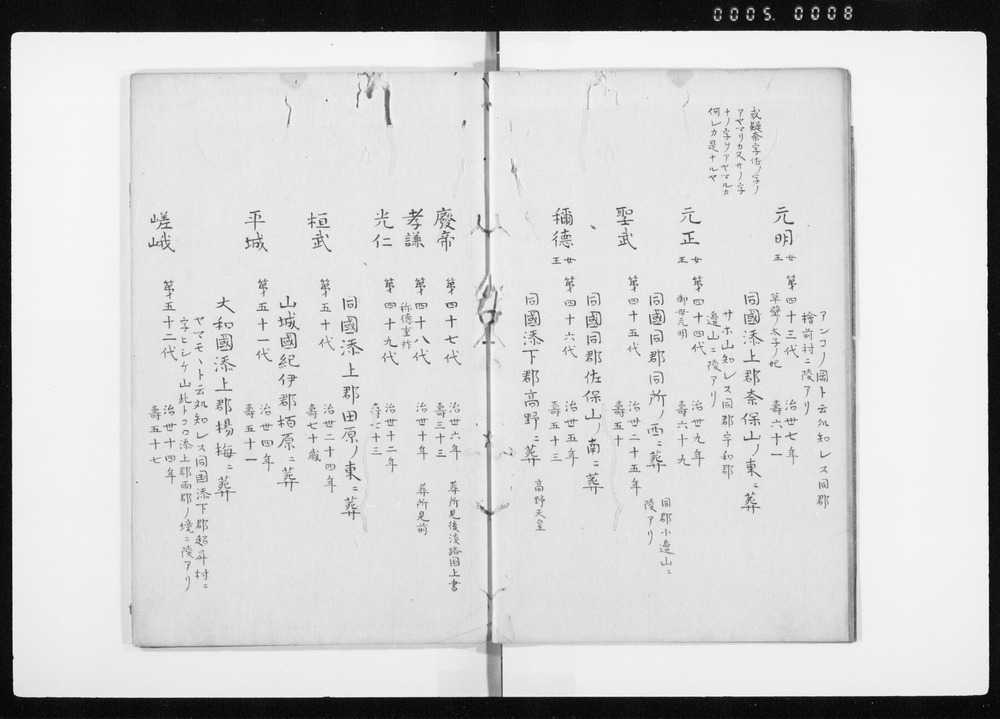 0005. 0008
アンコノ岡ト云処知レス同郡
檜前村ニ陵アリ
元明 女王 第四十三代 治世七年
草壁ノ太子ノ妃 壽六十一
同國添上郡奈保山ノ東ニ葬
或疑奈字佐ノ字ノ
アヤマリカ又サノ字
ナノ字ヲアヤマルカ
何レカ是ナルヤ
サホ山知レス同郡字和郡
邉山ニ陵アリ
元正 女王 第四十四代 治世九年
御母元明 壽六十九
同國同郡同所ノ西ニ葬
同郡小邉山ニ
陵アリ
聖武 第四十五代 治世二十五年
壽五十
同國同郡佐保山ノ南ニ葬
稱德 女王 第四十六代 治世五年
壽五十三
同國添下郡高野ニ葬 高野天皇
廢帝 第四十七代 治世六年 葬所見後淡路国上書
壽三十三
孝謙 第四十八代 治世十年 葬所見前
称徳重祚
光仁 第四十九代 治世十二年
壽七十三
同國添上郡田原ノ東ニ葬
桓武 第五十代 治世二十四年
壽七十歳
山城國紀伊郡栢原ニ葬
平城 第五十一代 治世四年
壽五十一
大和國添上郡楊梅ニ葬
ヤマモヽト云処知レス同国添下郡超昇村ニ
字ヒシケ山此トコロ添上郡両郡ノ境ニ陵アリ
嵯峨 第五十二代 治世十四年
壽五十七